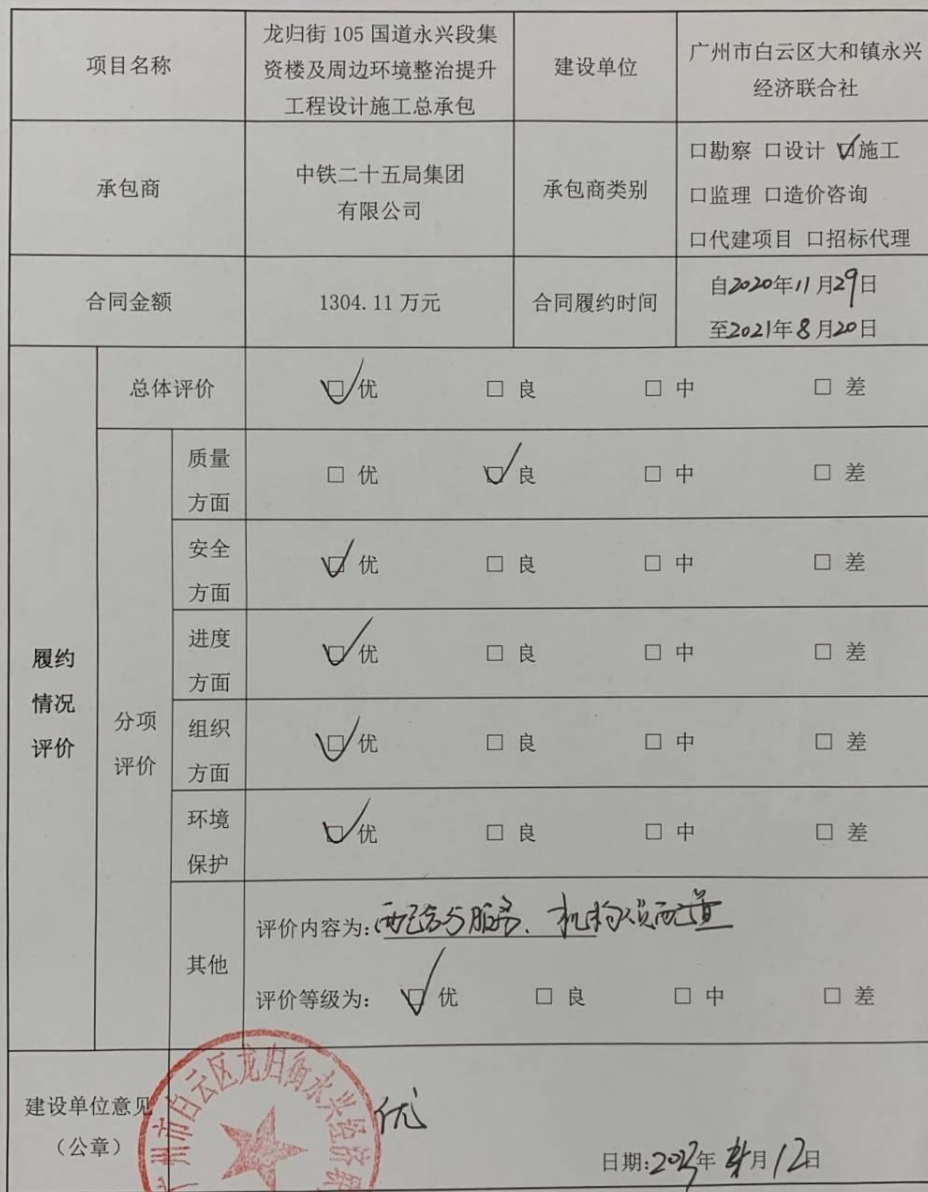 项目名称
龙归街 105 国道永兴段集
资楼及周边环境整治提升
工程设计施工总承包
建设单位
广州市白云区大和镇永兴
经济联合社
承包商
中铁二十五局集团
有限公司
承包商类别
口勘察 口设计 口施工
口监理 口造价咨询
口代建项目 口招标代理
合同金额
1304.11 万元
合同履约时间
自2020年11月29日
至2021年8月20日
履约
情况
评价
总体评价
□ 优 □ 良 □ 中 □ 差
分项
评价
质量
方面
□ 优 □ 良 □ 中 □ 差
安全
方面
□ 优 □ 良 □ 中 □ 差
进度
方面
□ 优 □ 良 □ 中 □ 差
组织
方面
□ 优 □ 良 □ 中 □ 差
环境
保护
□ 优 □ 良 □ 中 □ 差
其他
评价内容为:配合与服务、机构人员配置
评价等级为: □ 优 □ 良 □ 中 □ 差
建设单位意见
（公章）
广州市白云区龙归街永兴经济联
优
日期: 年 月12日